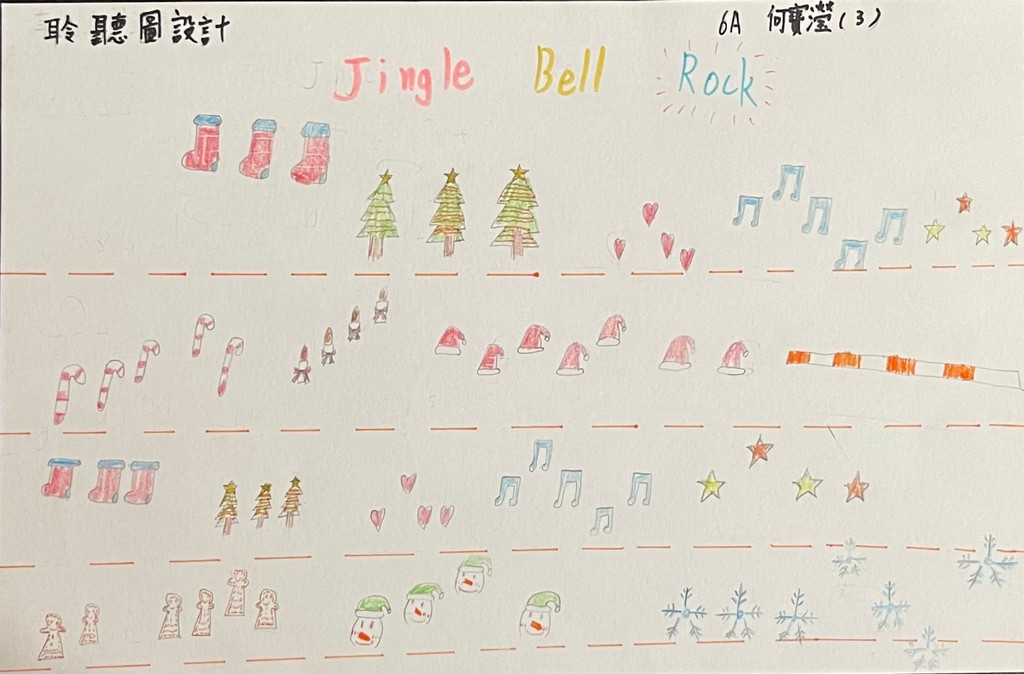 聆聽圖設計
6A 何寶瀅(3)
Jingle Bell Rock